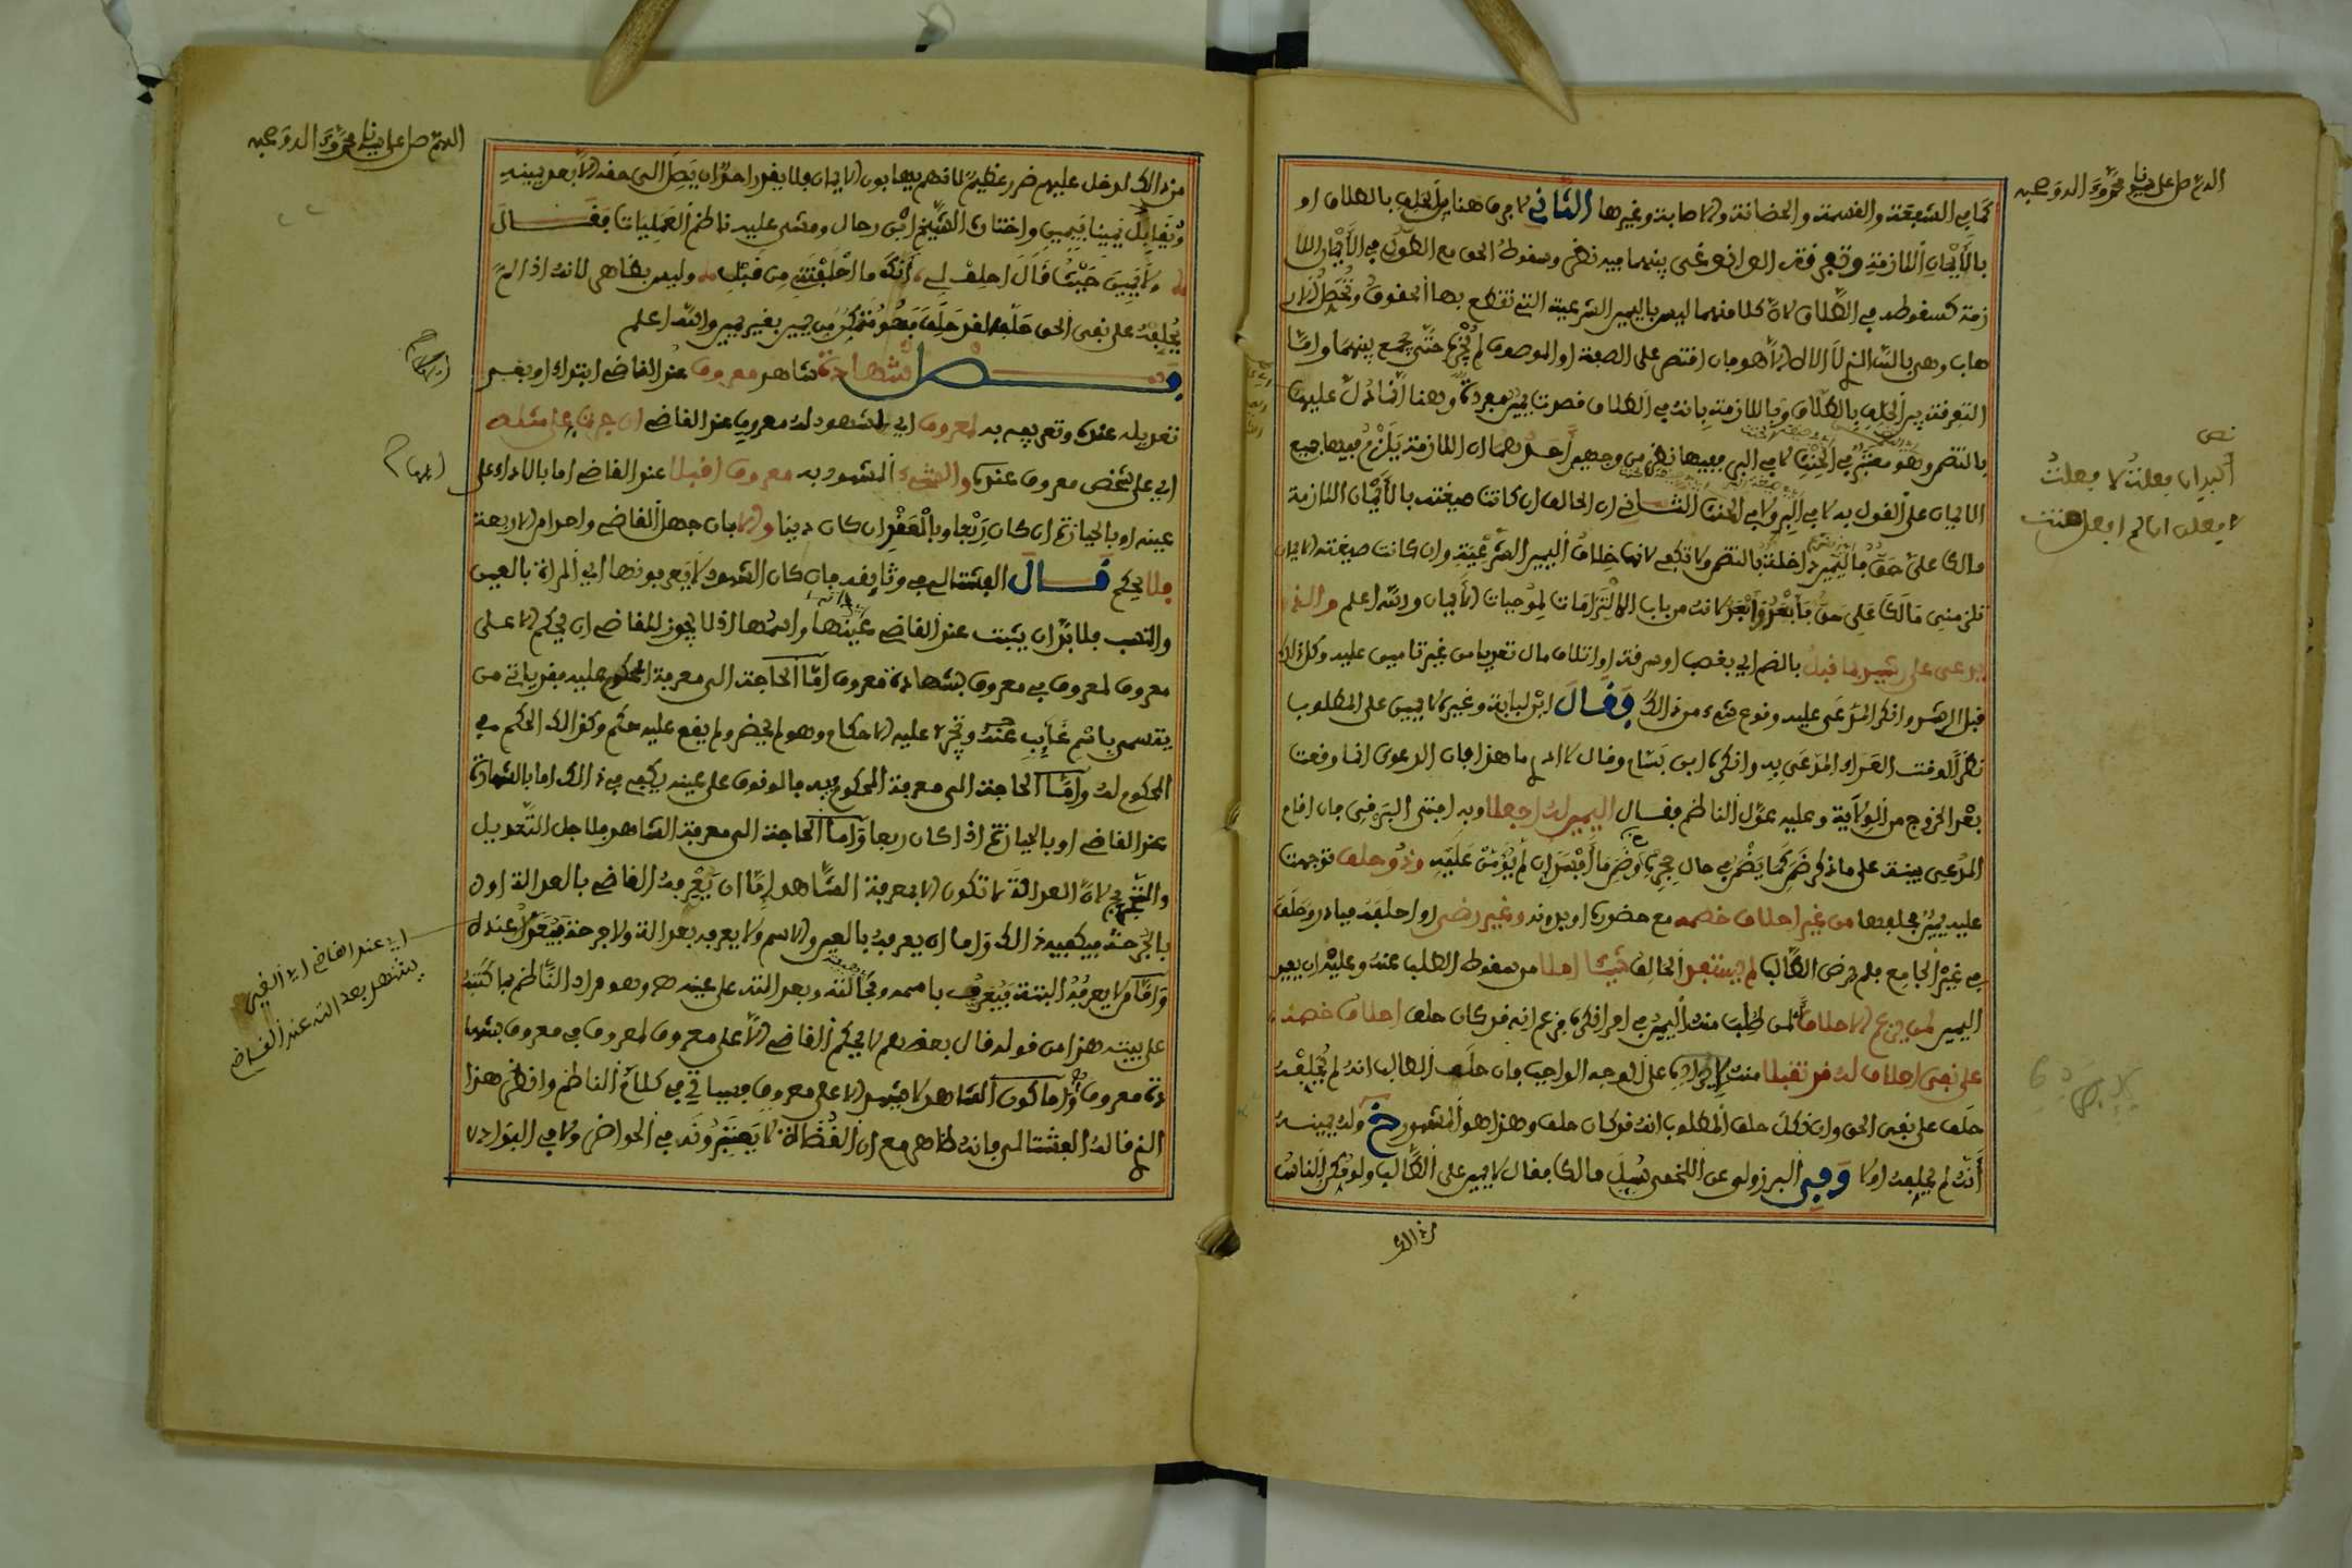 اللهم صل على سيدنا محمد وءاله وصحبه
كما في الشفعة والقسمة والحضانة والاصابة وغيرها الثاني لا فرق هنا بين الحلف بالطلاق او
بالأيمان اللازمة وتفرقة الوانوغي بينهما فيه نظر وسقوط الحق مع النكول في الأيمان اللا
زمة كسقوطه في الطلاق لان كلا منهما ليس باليمين الشرعية التي تقطع بها الحقوق
هاب وهي بالله الذي لا اله الا هو فان اقتصر على الصفة او الموصوف لم يجزه حتى يجمع بينهما واما
التفرقة بين الحلف بالطلاق وباللازمة بانه في الطلاق قصدت يمين مفردة وهنا انما دل عليها
بالتضمن وهو معتبر في الحنث لا في البر ففيها نظر من وجهين أحدهما ان اللازمة يلزم فيها جميع
الايمان على القول به لا في البر ولا في الحنث الثاني ان الحالف ان كانت صيغته بالأيمان اللازمة
مالك علي حق فاليمين داخلة بالتضمن ولا تكفي لانها خلاف اليمين الشرعية وان كانت صيغته الايمان
تلزمني مالك علي حق فأبعد وأبعد لانه من باب الالتزامات لموجبات الأيمان والله اعلم
بالضم اي بغصب او سرقة او اتلاف مال تعديا من غير تامين عليه وكل ذلك
قبل الرشد وانكر المدعى عليه وقوع شيء من ذلك فقال ابن لبابة وغيره لا يمين على المطلوب
نظرا لوقت العداء المدعى به وانكره ابن بشام وقال لا ادري ما هذا فان الدعوى انما وقعت
بعد الخروج من الولاية وعليه عول الناظم فقال اليمين له اجعلا وبه افتى البرقي فان اقام
المدعي بينة على ما ذكر ضمن كما يضمن في حال حجره وضمن ما أفسد إن لم يؤمن عليه وذو حلف توجهت
عليه يمين فحلفها من غير احلاف خصمه مع حضوره او بدونه وغير رضى او احلفه فبادر وحلف
في غير الجامع فلم يرض الطالب لم يستفد الحالف شيئا اصلا من سقوط الطلب عنه وعليه ان يعيد
اليمين لمن يدعي الاحلاف لمن طلبت منه اليمين في امر انكره فزعم انه قد كان حلف احلاف خصمه
على نفي احلاف له قد تقبلا منه على الوجه الواجب فان حلف الطالب انه لم يحلفه
حلف على نفي الحق وان نكل حلف المطلوب انه قد كان حلف وهذا هو المشهور خ وله يمينه
أنه لم يحلفه اولا وفي البرزولي عن اللخمي سيل مالك فقال لا يمين على الطالب ولو مكن الناس
من ذالك
نص
أكبر ان فعلت لا فعلت
لا فعلن ان لم افعل حنث
اللهم صل على سيدنا محمد وءاله وصحبه
من ذالك لدخل عليهم ضرر عظيم لانهم يهابون الايمان فلا يقدر احد ان يصل الى حقه الا بعد يمينه
وتقابل يمينا بيمين واختار الشيخ ابن رحال ومشى عليه ناظم العمليات فقال
ولا يمين حيث قال احلف لي أنك ما احلفتني من قبل وليس بظاهر لانه اذا لم
يحلفه على نفي الحق حلفه لقد حلف فهو متمكن من يمين بغير يمين والله اعلم
فصل شهادة شاهد معروف عند القاضي ابتداء او بغير
تعديله عنده وتعريفه به لمعروف اي لمشهود له معروف عند القاضي ان جرت على مثله
اي على شخص معروف عنده والشيء المشهود به معروف اقبلا عند القاضي اما بالاداء على
عينه او بالحيازة ان كان ربعا وبالعقد ان كان دينا والا بان جهل القاضي واحدا من الاربعة
فلا يحكم قال الفشتالي في وثايقه فان كان الشهود لا يعرفونها اي المراة بالعين
والنسب فلا بد ان يثبت عند القاضي عينها واسمها اذ لا يجوز للقاضي ان يحكم الا على
معروف لمعروف في معروف بشهادة معروف امّا الحاجة الى معرفة المحكوم عليه فقد ياتي من
يتسمى باسم غايب عنه وتجري عليه الاحكام وهو لم يحضر ولم يقع عليه حكم وكذالك الحكم في
المحكوم له وامّا الحاجة الى معرفة المحكوم فيه فالوقوف على عينه يكفي في ذالك اما بالشهادة
عند القاضي او بالحيازة اذا كان ربعا وامّا الحاجة الى معرفة الشاهد فلاجل التعديل
والتجريح لان العدالة لا تكون الا بمعرفة الشاهد إما ان يعرفه القاضي بالعدالة او
بالجرحة فيكفيه ذالك واما ان يعرفه بالعين والاسم ولا يعرفه بعدالة ولا جرحة فيعدل عنده
وامّا ولا يعرفه البتة فيعرف باسمه وبعدالته على عينه وهو مراد الناظم
على بينه هذا من قوله قال بعضهم لا يحكم القاضي إلا على معروف لمعروف في معروف بشها
دة معروف واما كون الشاهد لا يشهد الا على معروف فسياتي في كلام الناظم وانظر هذا
الذي قاله الفشتالي فانه ظاهر مع ان القضاة لا يعتبرونه في الحواضر ولا في البوادي
اي عند القاضي اي العين
يشهد بعدالته عند القاضي